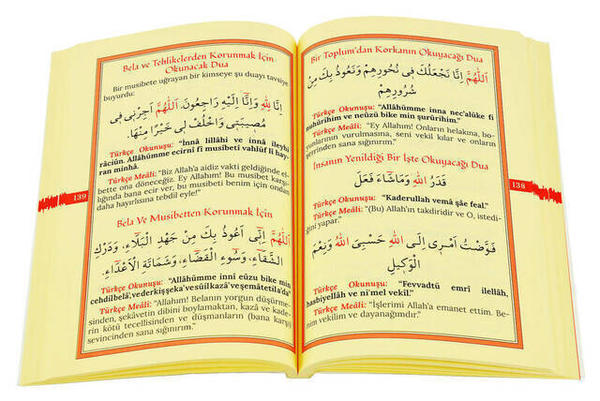 Bela ve Tehlikelerden Korunmak İçin
Okunacak Dua
Bir musibete uğrayan bir kimseye şu duayı tavsiye
buyurdu:
إِنَّا لِلّٰهِ وَإِنَّا إِلَيْهِ رَاجِعُونَ. اَللّٰهُمَّ اَجِرْنِى فِى
مُصِيبَتِى وَاخْلُفْ لِى خَيْرًا مِنْهَا.
Türkçe Okunuşu: "İnnâ lillâhi ve innâ ileyhi
râciûn. Allâhümme ecirnî fî musîbetî vahlüf lî hay-
ran minhâ.
Türkçe Meâli: "Biz Allah'a aidiz vakti geldiğinde el-
bette ona döneceğiz. Ey Allahım! Bu musibet karşı-
lığında bana ecir ver, bu musibeti benim için ondan
daha hayırlısına tebdil eyle!"
139
Bela Ve Musibetten Korunmak İçin
اَللّٰهُمَّ إِنِّى أَعُوذُ بِكَ مِنْ جَهْدِ الْبَلَاءِ، وَدَرَكِ
الشَّقَاءِ، وَسُوءِ الْقَضَاءِ، وَشَمَاتَةِ الْأَعْدَاءِ.
Türkçe Okunuşu: "Allâhümme innî eûzu bike min
cehdilbelâ', vederkişşeka' vesûilkazâ' veşemâtetila'da"
Türkçe Meâli: "Allahım! Belanın yorgun düşürme-
sinden, şekâvetin dibini boylamaktan, kazâ ve kade-
rin kötü tecellisinden ve düşmanların (bana karşı)
sevincinden sana sığınırım."
Bir Toplum'dan Korkanın Okuyacağı Dua
اَللّٰهُمَّ إِنَّا نَجْعَلُكَ فِى نُحُورِهِمْ وَنَعُوذُ بِكَ مِنْ
شُرُورِهِمْ
Türkçe Okunuşu: "Allâhümme inna nec'alüke fî
nuhûrihim ve neûzü bike min şurûrihim."
Türkçe Meâli: "Ey Allahım! Onların helakına, bo-
yunlarının vurulmasına, seni vekil kılar ve onların
şerrinden sana sığınırım."
İnsanın Yenildiği Bir İşte Okuyacağı Dua
قَدَرُ اللهِ وَمَاشَاءَ فَعَلَ
138
Türkçe Okunuşu: "Kaderullah vemâ şâe feal."
Türkçe Meâli: "(Bu) Allah'ın takdiridir ve O, istedi-
ğini yapar."
فَوَّضْتُ أَمْرِى إِلَى اللهِ حَسْبِىَ اللهُ وَنِعْمَ
الْوَكِيلُ
Türkçe Okunuşu: "Fevvadtü emrî ilellâh,
hasbiyellâh ve ni'mel vekîl."
Türkçe Meâli: "İşlerimi Allah'a emanet ettim. Be-
nim vekilim ve dayanağımdır."